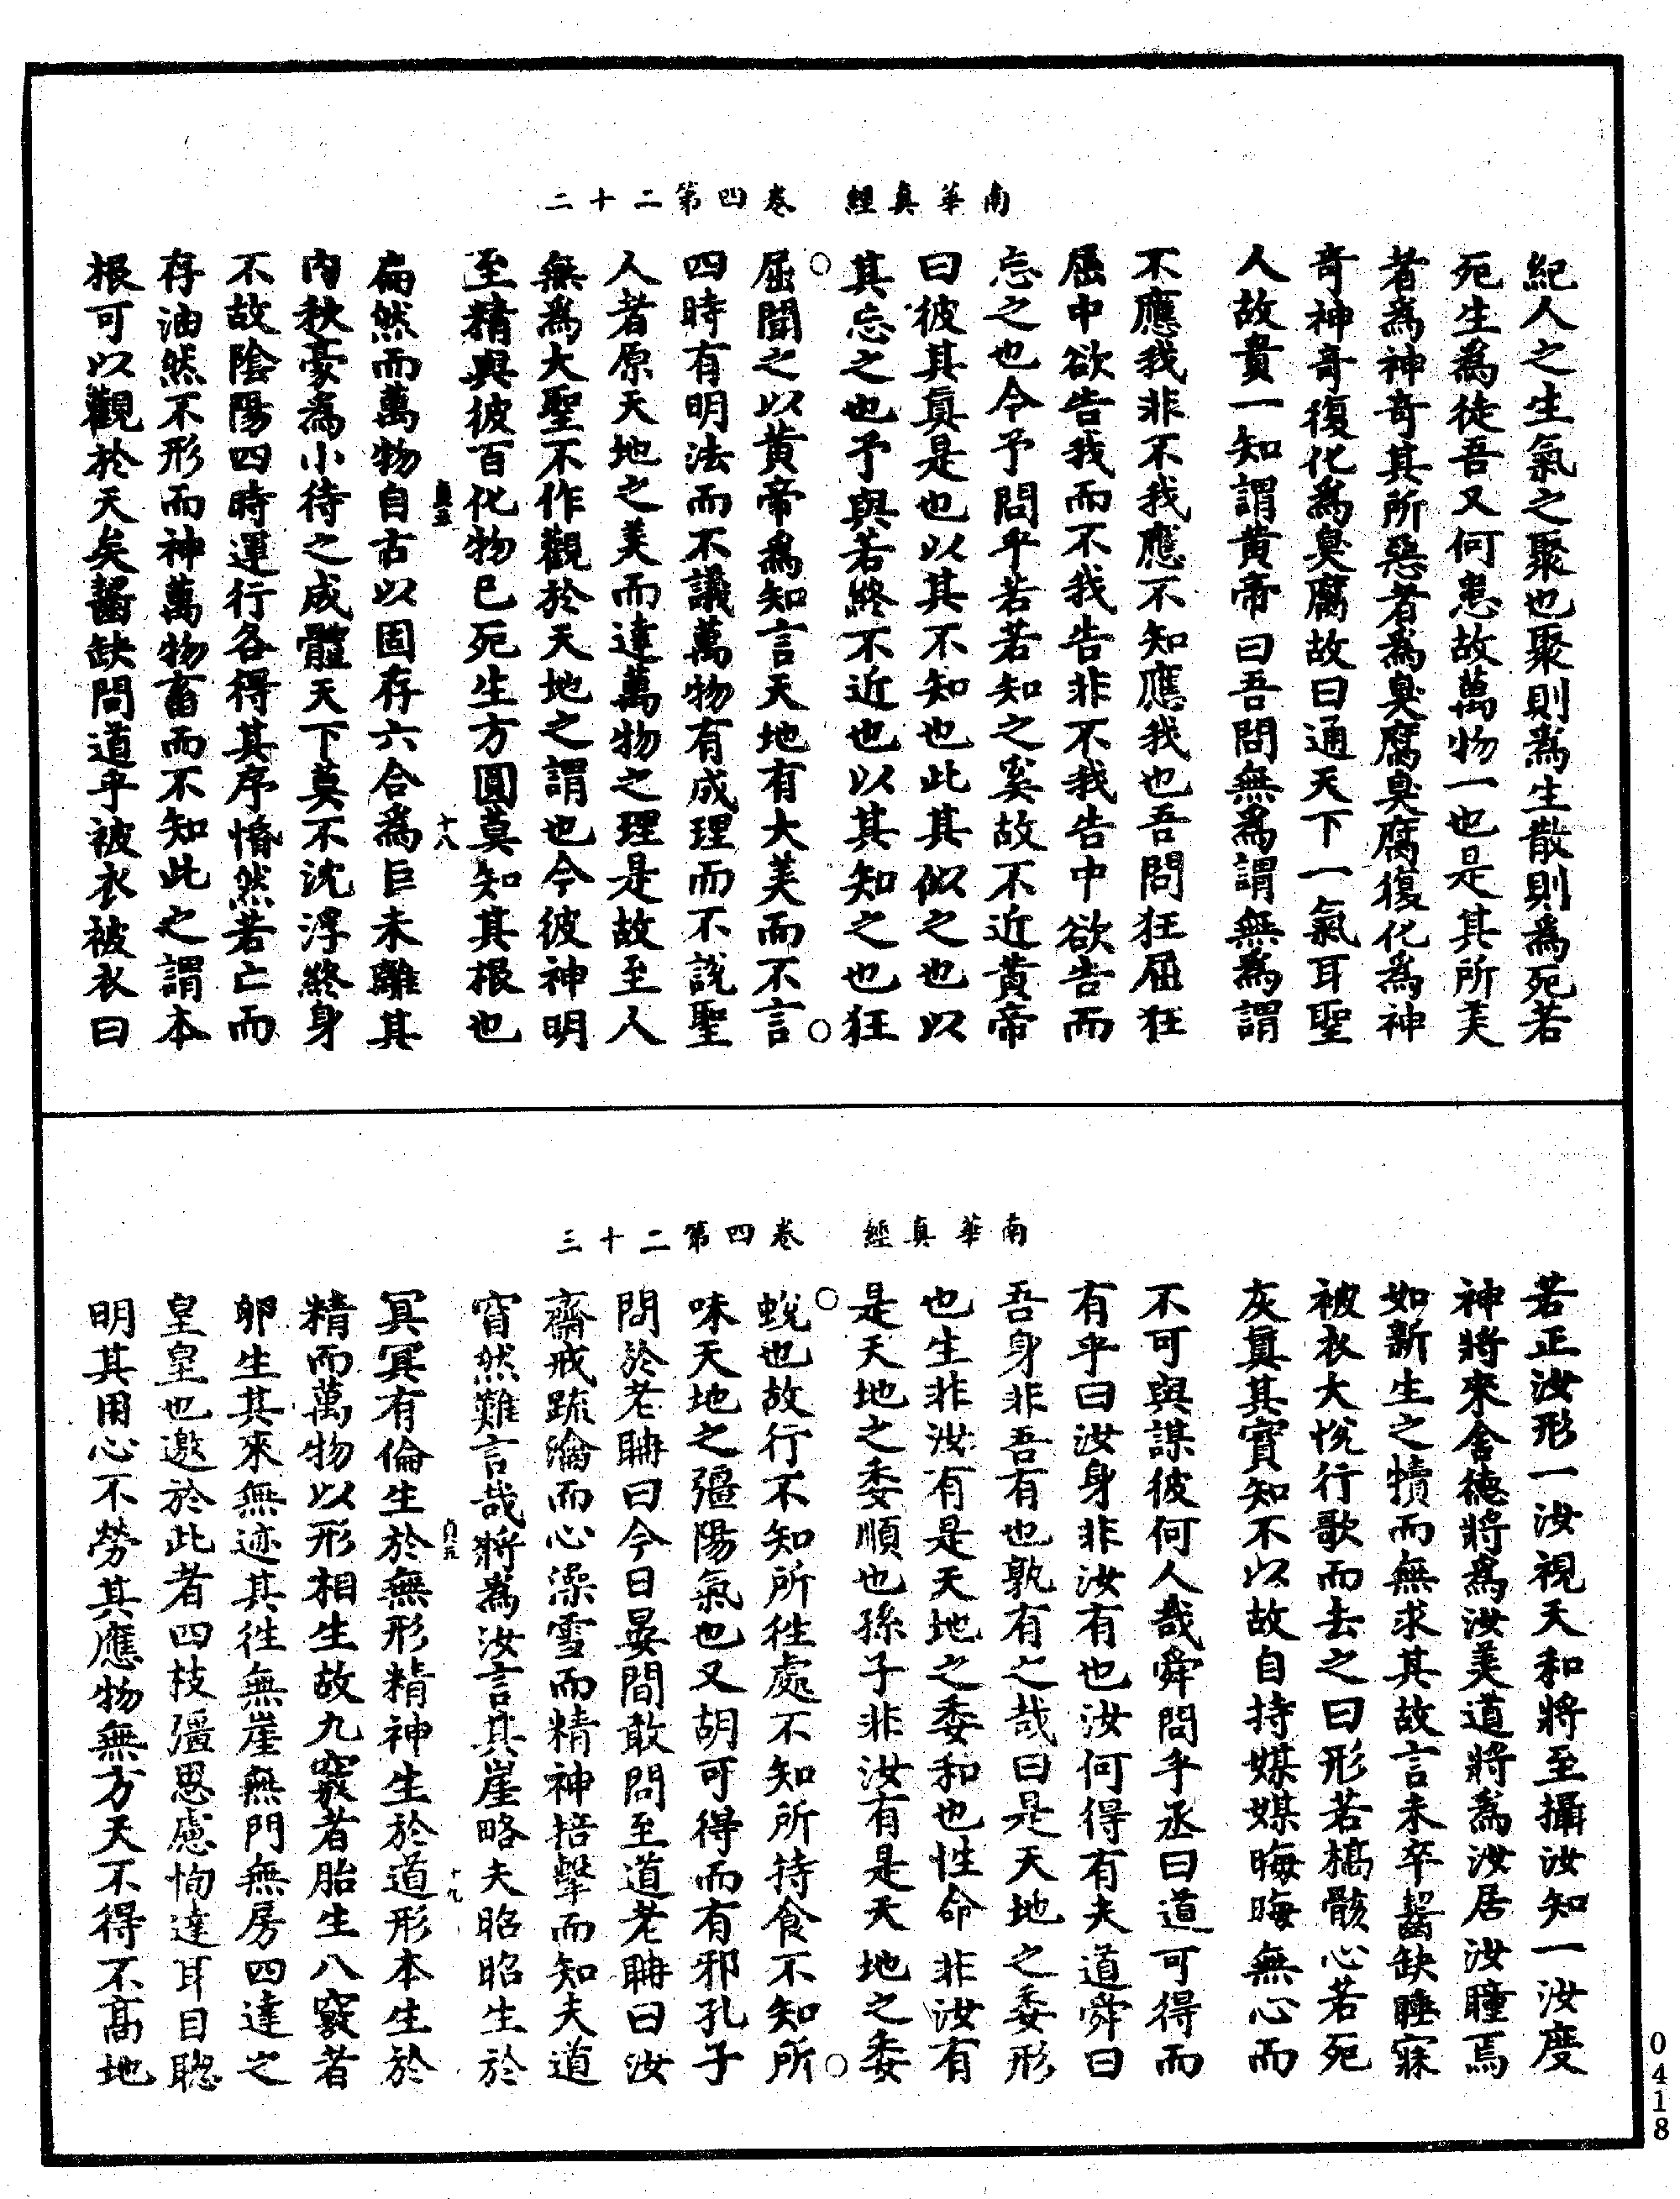 南華真經　卷四第二十二
紀人之生氣之聚也聚則為生散則為死若
死生為徒吾又何患故萬物一也是其所美
者為神奇其所惡者為臭腐臭腐復化為神
奇神奇復化為臭腐故曰通天下一氣耳聖
人故貴一知謂黄帝曰吾問無為謂無為謂
不應我非不我應不知應我也吾問狂屈狂
屈中欲告我而不我告非不我告中欲告而
忘之也今予問乎若若知之奚故不近黄帝
曰彼其真是也以其不知也此其似之也以
其忘之也予與若終不近也以其知之也狂
屈聞之以黄帝為知言天地有大美而不言
四時有明法而不議萬物有成理而不説聖
人者原天地之美而達萬物之理是故至人
無為大聖不作觀於天地之謂也今彼神明
至精與彼百化物已死生方圓莫知其根也
十八
扁然而萬物自古以固存六合為巨未離其
内秋豪為小待之成體天下莫不沈浮終身
不故陰陽四時運行各得其序惛然若亡而
存油然不形而神萬物畜而不知此之謂本
根可以觀於天矣齧缺問道乎被衣被衣曰
南華真經　卷四第二十三
若正汝形一汝視天和將至攝汝知一汝度
神將來舍德將為汝美道將為汝居汝瞳焉
如新生之犢而無求其故言未卒齧缺睡寐
被衣大悅行歌而去之曰形若槁骸心若死
灰真其實知不以故自持媒媒晦晦無心而
不可與謀彼何人哉舜問乎丞曰道可得而
有乎曰汝身非汝有也汝何得有夫道舜曰
吾身非吾有也孰有之哉曰是天地之委形
也生非汝有是天地之委和也性命非汝有
是天地之委順也孫子非汝有是天地之委
蛻也故行不知所往處不知所持食不知所
味天地之彊陽氣也又胡可得而有邪孔子
問於老聃曰今日晏間敢問至道老聃曰汝
齋戒疏瀹而心澡雪而精神掊擊而知夫道
窅然難言哉將為汝言其崖略夫昭昭生於
十九
冥冥有倫生於無形精神生於道形本生於
精而萬物以形相生故九竅者胎生八竅者
卵生其來無迹其往無崖無門無房四達之
皇皇也邀於此者四枝彊思慮恂達耳目聦
明其用心不勞其應物無方天不得不高地
0418